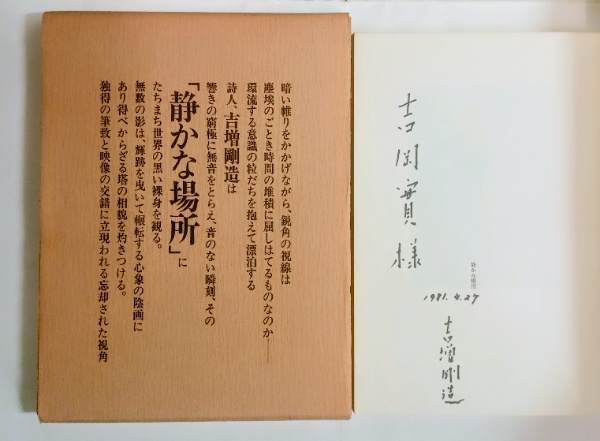 暗い帷りをかかげながら、鋭角の視線は
塵埃のごとき時間の堆積に屈しはてるものなのか――
環流する意識の粒だちを抱えて漂泊する
詩人、吉増剛造は
響きの窮極に無音をとらえ、音のない瞬刻、その
「静かな場所」に
たちまち世界の黒い裸身を観る。
無数の影は、輝跡を曳いて輾転する心象の陰画に
あり得べからざる塔の相貌を灼きつける。
独得の筆致と映像の交錯に立現われる忘却された視角
吉岡實様
静かな場所
1981.4.27
吉増剛造